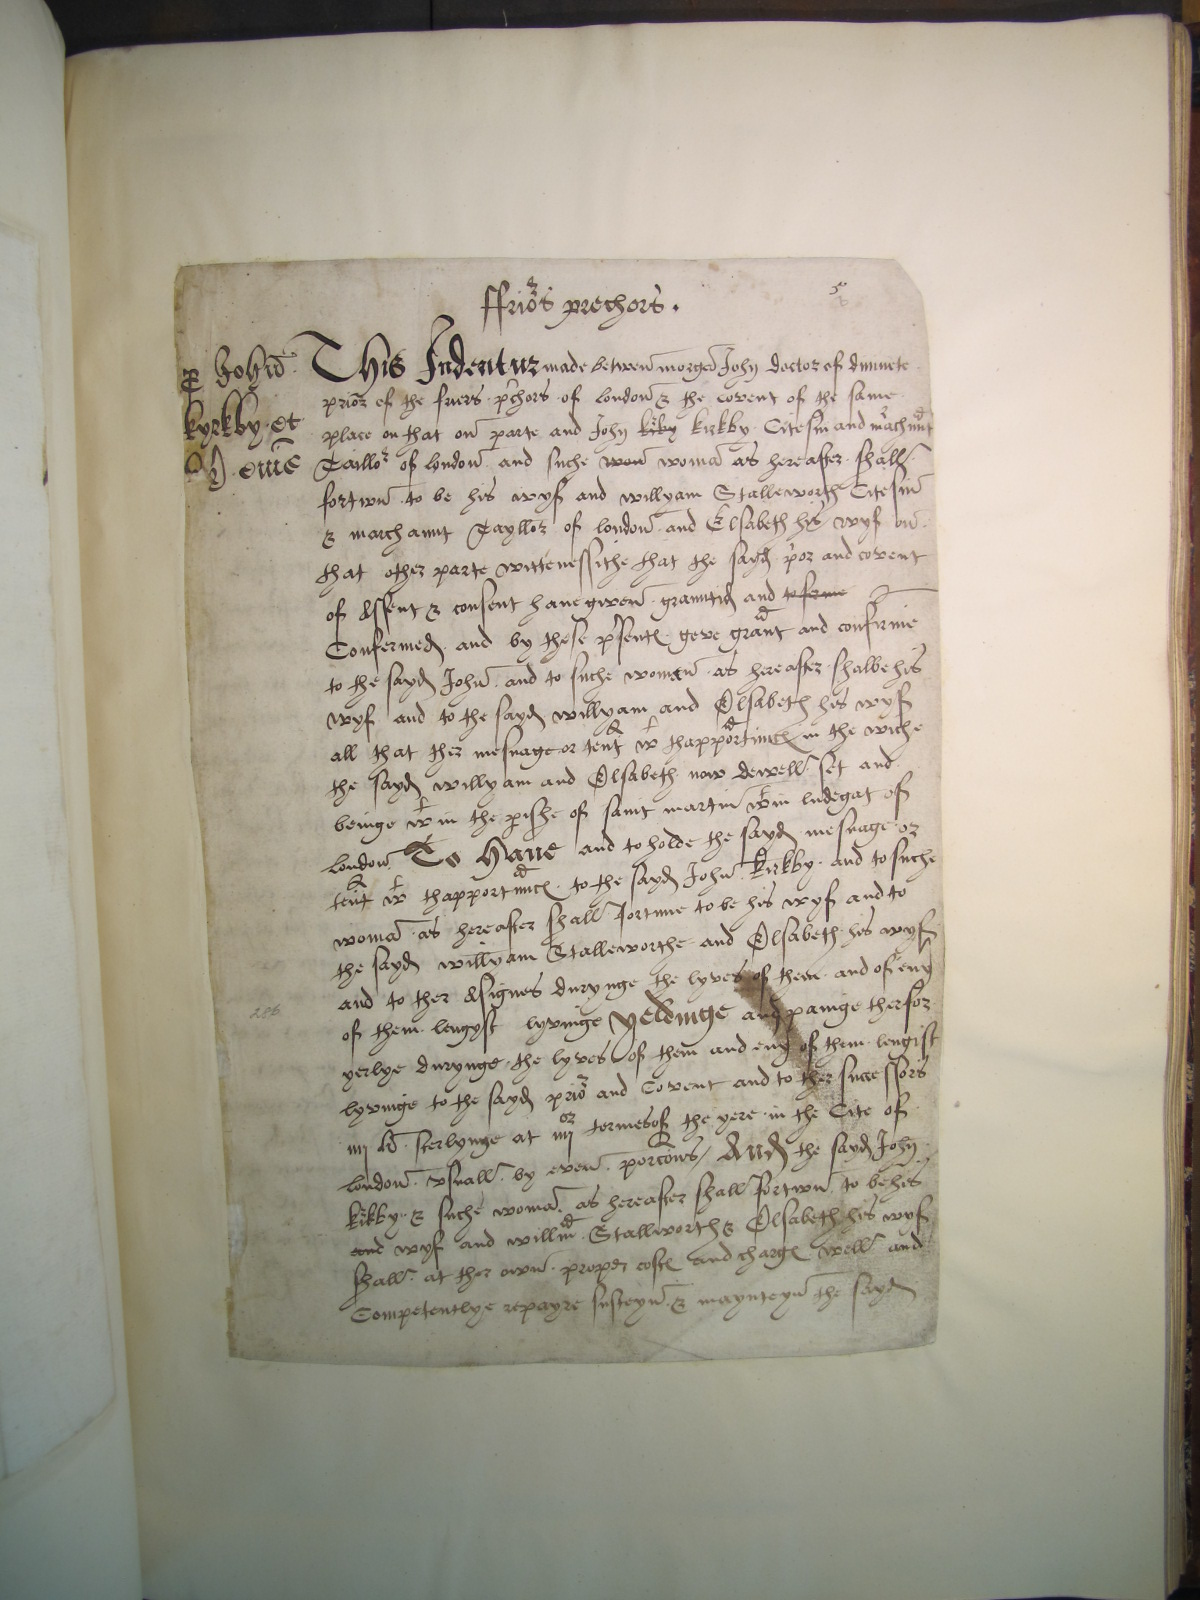 ffrio^rs prechors .
5
p Johñ
kyrkby et
This Indentur made betwen morgan John doctor of divinite
prior of the friers prchors of london & the covent of the same
place on that on parte and John kirkby Citesin and m^achaunt
Taillor of london and suche woman as hereafter shall
fortun to be his wyf and willyam Stalleworth Citesin
& marchannt Tayllor of london and Elsabeth his wyf on
that other parte wittenessithe that the sayd p^ior and covent
of assent & consent have given grauntid and
Confermed and by these p^sents geve grant and confirme
to the sayd John and to suche woman as hereafter shalbe his
wyf and to the sayd willyam and Elsabeth his wyf
all that ther mesuage or tent w^t thapportin^ces in the wiche
the sayd willyam and Elsabeth now dewell set and
beinge w^t in the pishe of saint martin w^t in ludegat of
london To Have and to holde the sayd mesuage or
tent w^t thapportin^ces to the sayd John kirkby and to suche
woman as hereafter shall fortune to be his wyf and to
the sayd willyam Stalleworthe and Elsabeth his wyf
and to ther assignes durynge the lyves of them and of eny
of them lengyst lyvinge yeldinge and painge therfor
yerlye durynge the lyves of them and eny of them lengist
lyvinge to the sayd prio^r and Covent and to ther successors
iiij li sterlynge at iiij^or termes of the yere in the Cite of
london usuall by even porcons / And the sayd John
kirkby & suche woman as hereafter shall fortun to be his
wyf and willm Stallworth & Elsabeth his wyf
shall at ther own proper costes and charges well and
Competentlye repayre susteyn & maynteyn the sayd